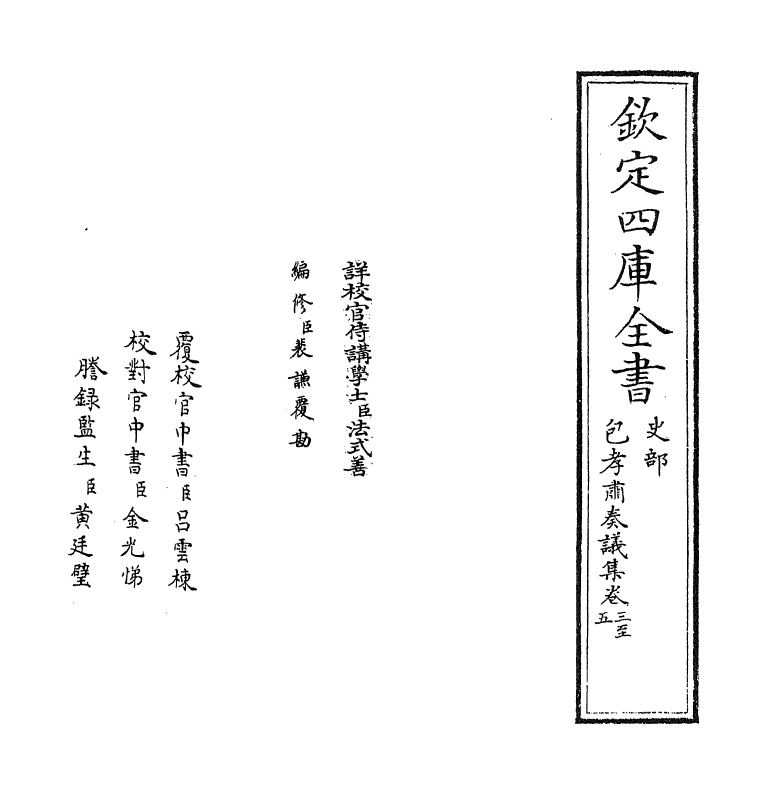 欽定四庫全書
史部
包孝肅奏議集卷三至五
詳校官侍講學士臣法式善
編修臣裴謙覆勘
覆校官中書臣呂雲棟
校對官中書臣金光悌
謄錄監生臣黄廷璧